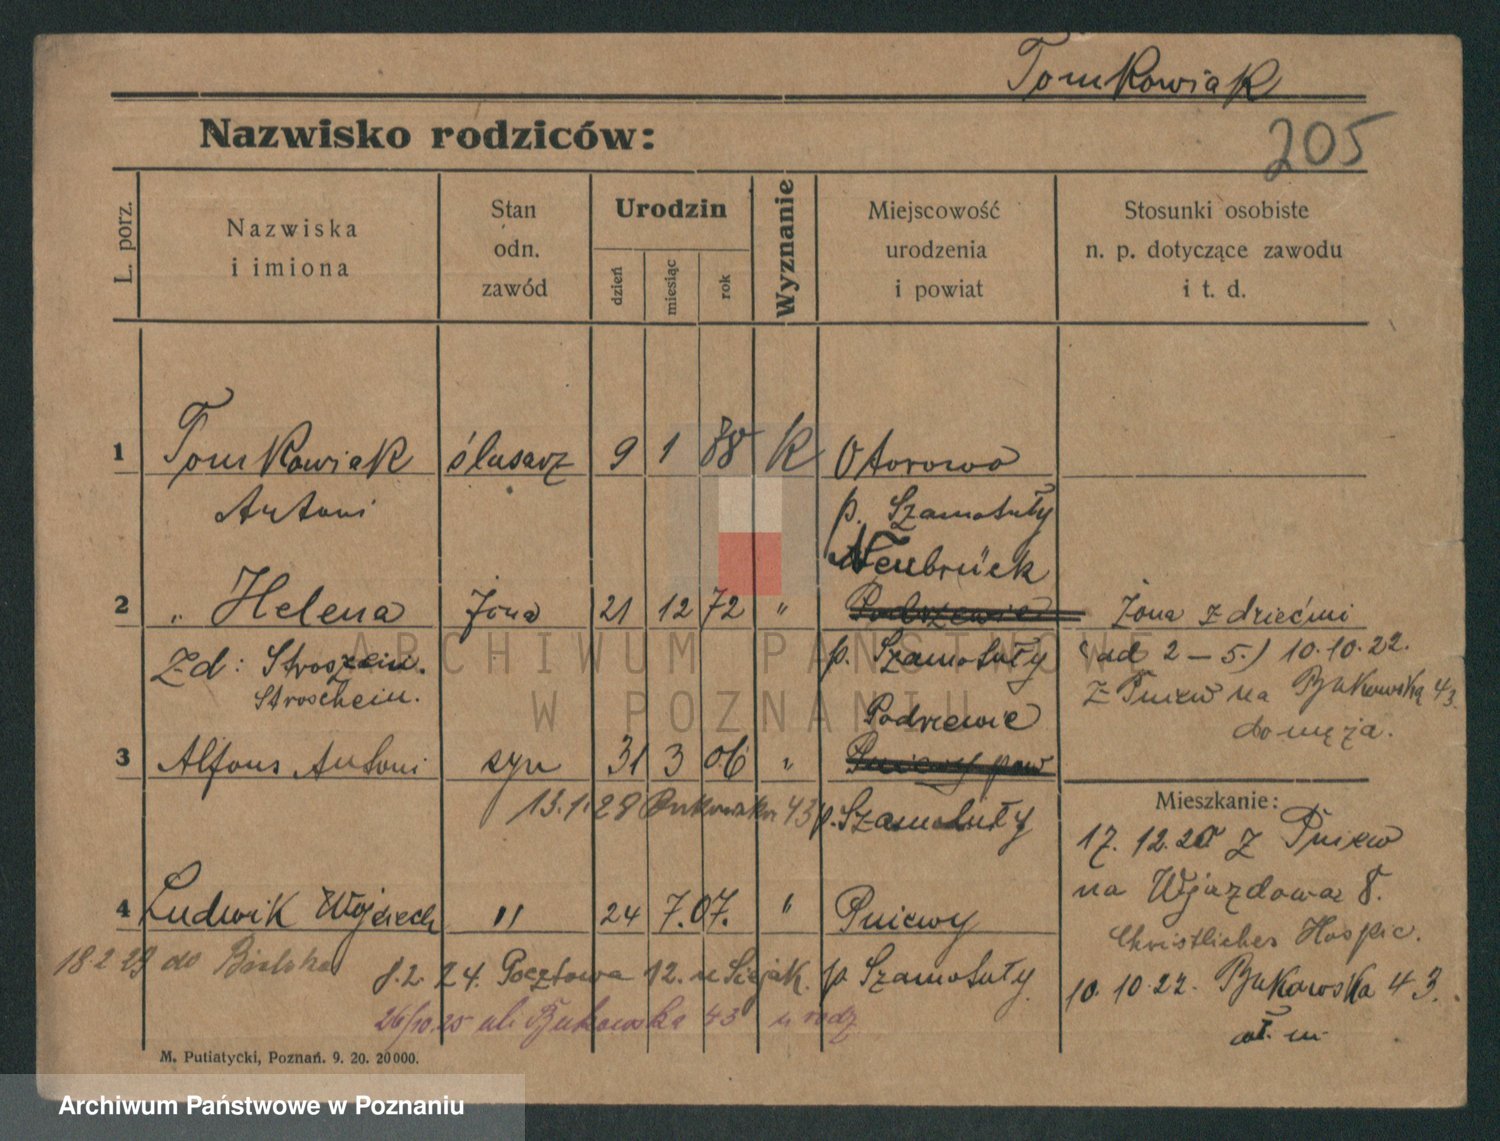 Tomkowiak
Nazwisko rodziców:
205
L. porz.
Nazwiska
i imiona
Stan
odn.
zawód
Urodzin
dzień
miesiąc
rok
Wyznanie
Miejscowość
urodzenia
i powiat
Stosunki osobiste
n. p. dotyczące zawodu
i t. d.
1 Tomkowiak ślusarz 9 1 88 K Otorowo
Antoni p. Szamotuły
Neubrück
2 " Helena żona 21 12 72 " Podrzewie Żona z dziećmi
Zd: Stroszein. p. Szamotuły (ad 2 – 5.) 10.10.22.
Stroschein. z Pniew na Bukowską 43.
Podrzewie do męża.
3 Alfons Antoni syn 31 3 06 " Pniewy pow
13.1.28 Bukowska 43 p. Szamotuły
Mieszkanie:
17. 12. 20 z Pniew
na Wjazdowa 8.
4 Ludwik Wojciech " 24 7. 07. " Pniewy
Christliches Hospic.
18.2.29 do Bielska
8.2.24. Pocztowa 12. u Siejak. p. Szamotuły
10. 10. 22. Bukowska 43.
26/10.25 ul. Bukowska 43 u rodz
wł. m.
M. Putiatycki, Poznań. 9. 20. 20000.
ARCHIWUM PAŃSTWOWE
W POZNANIU
Archiwum Państwowe w Poznaniu